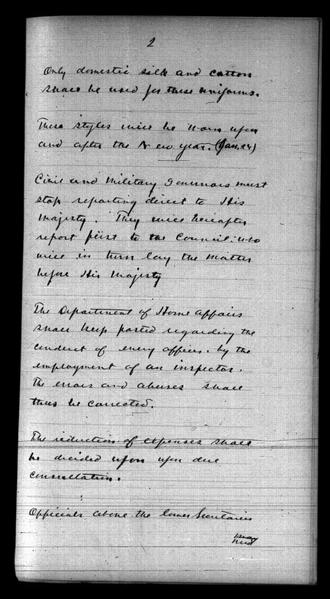 2
Only domestic silk and cotton
shall be used for these uniforms.
These styles will be worn upon
and after the New year. (Jan. 24)
Civil and Military Governors must
stop reporting direct to His
Majesty. They will hereafter
report first to the Council: who
will in turn lay the matter
before His Majesty
The Department of Home Affairs
shall keep posted regarding the
conduct of every officer. by the
employment of an inspector.
The errors and abuses shall
thus be corrected.
The reduction of expenses shall
be decided upon upon due
consultation.
Officials above the lower Secretaries